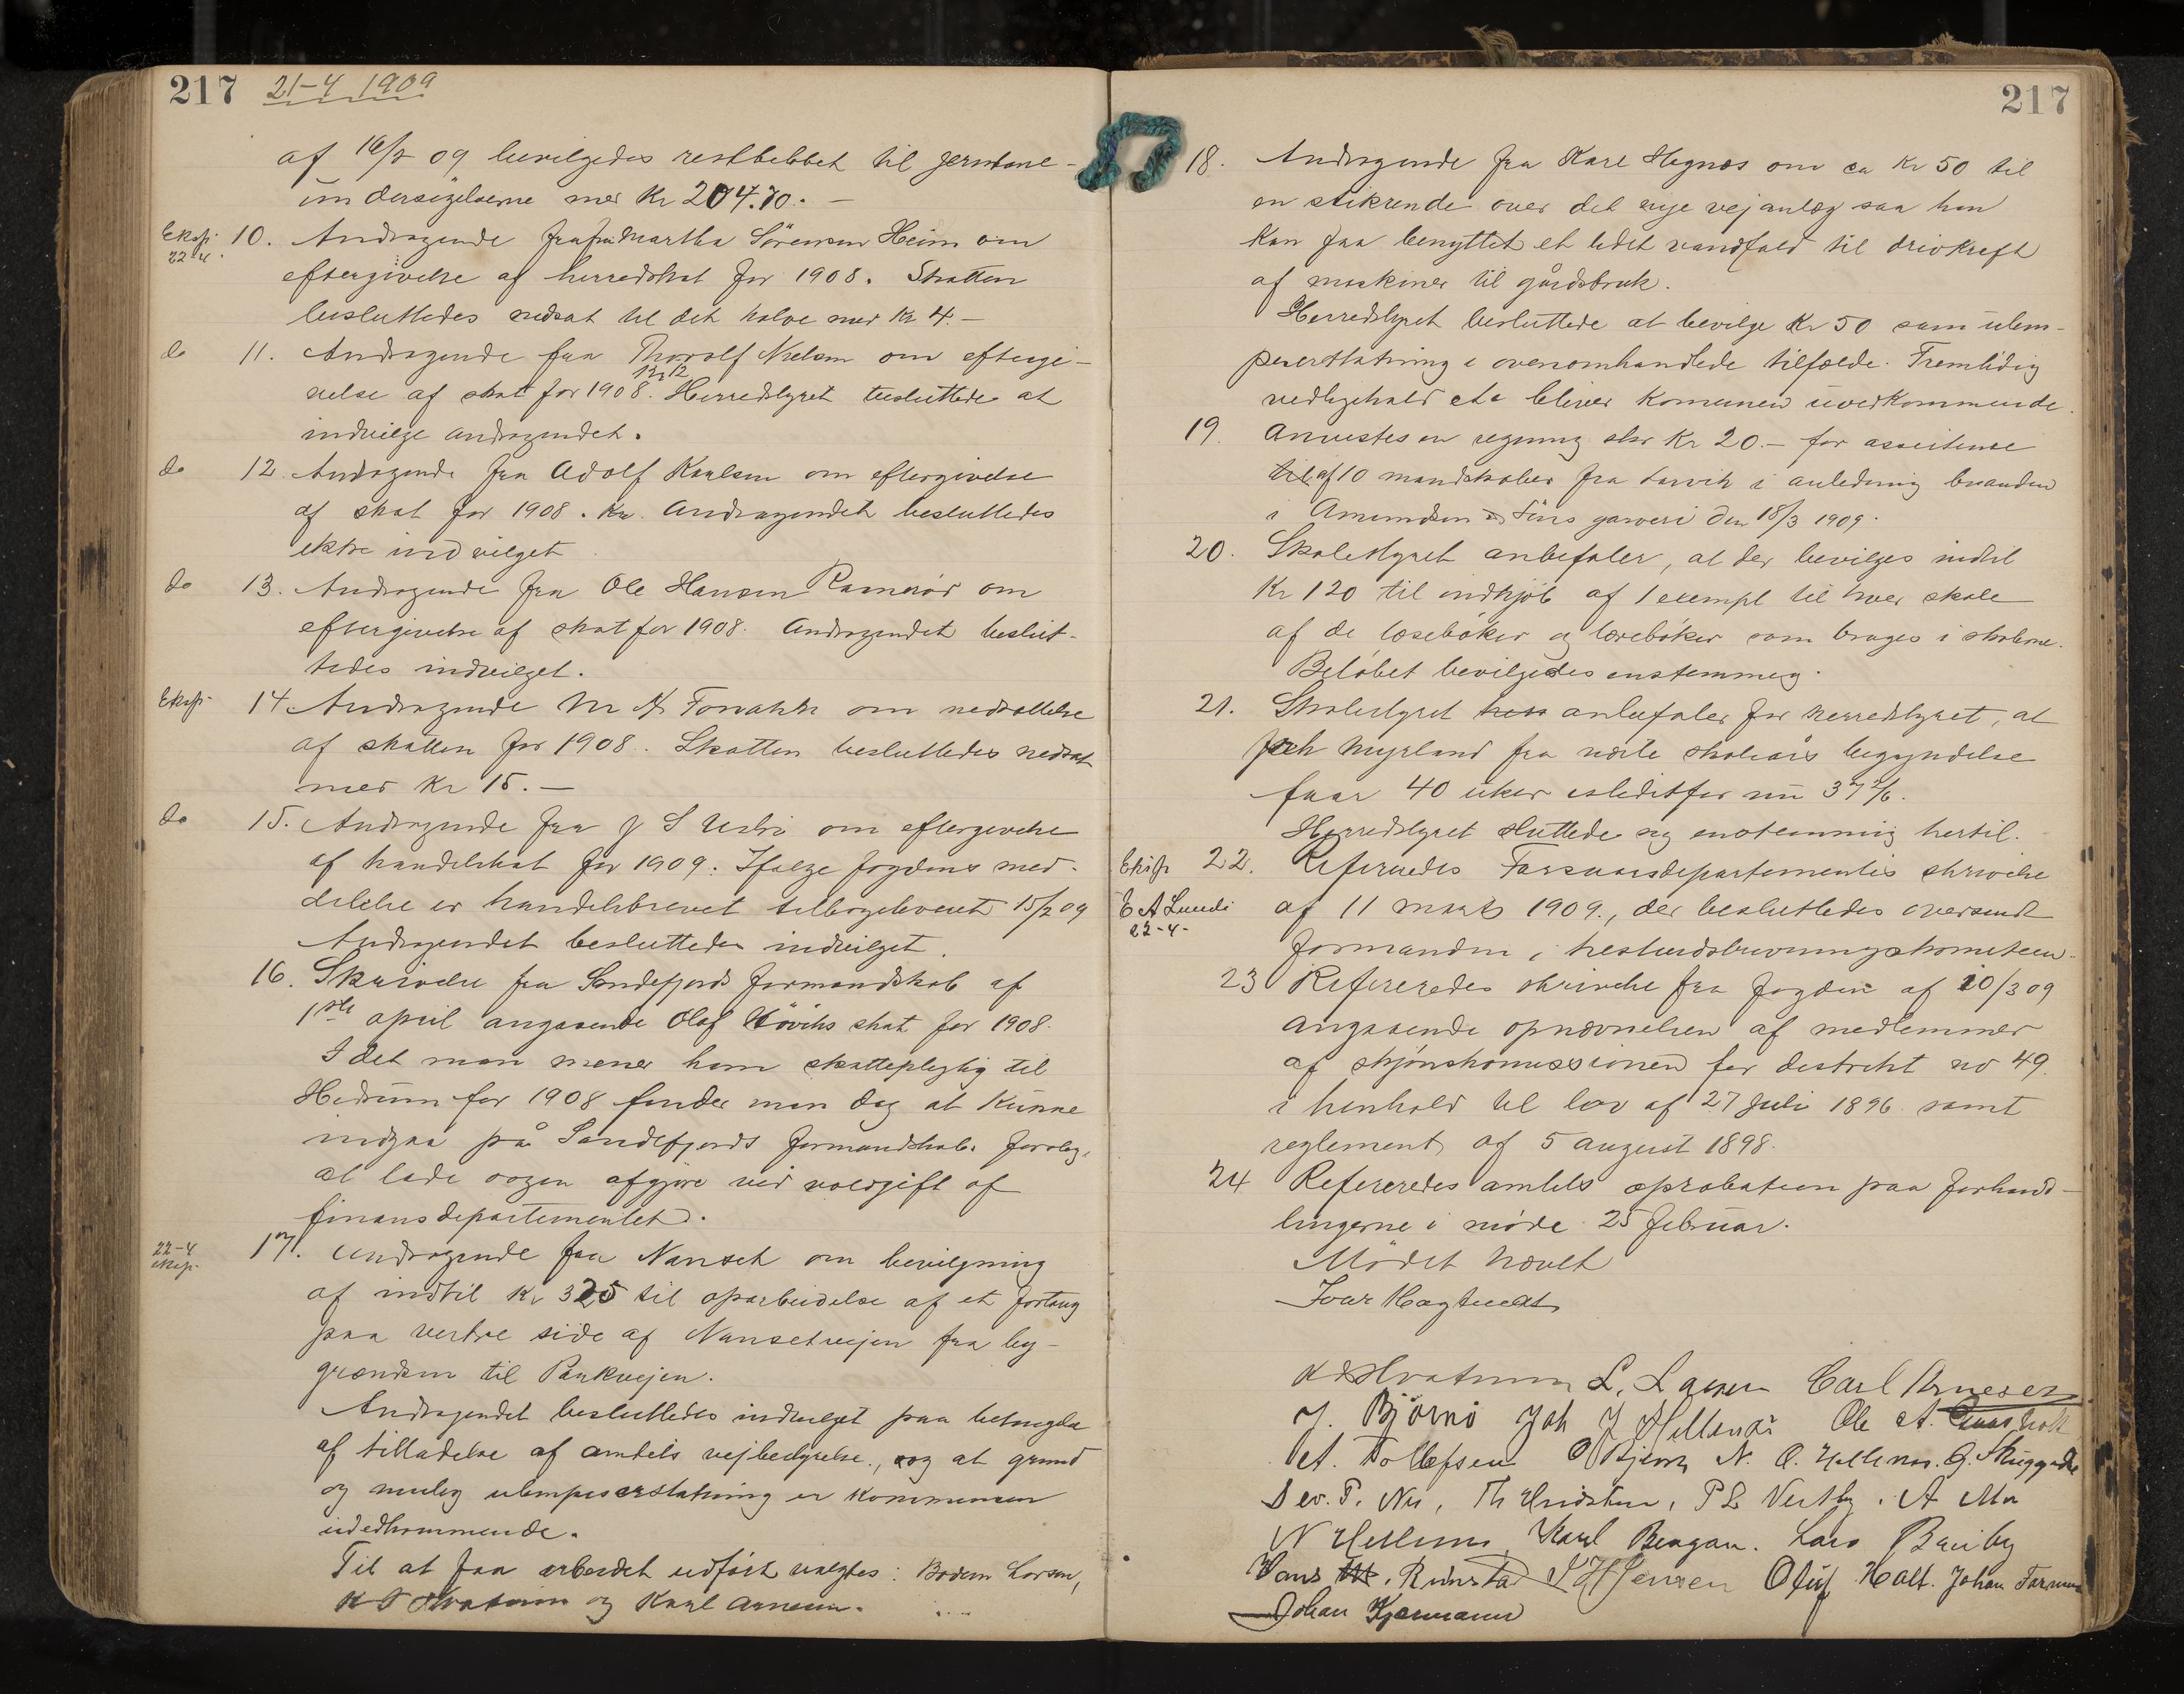 217 21-4 1909
af 16/2 09 bevilgedes restbeløbet til jernbane-
undersøgelserne med Kr 204.70. —
Eksp. 22-4. 10. Andragende fra fru Martha Sörensen Heim om
eftergivelse af herredskat for 1908. Skatten
besluttedes nedsat til det halve med Kr 4.—
do 11. Andragende fra Thorolf Nielsen om eftergi-
velse af skat for 1908. Herredstyret besluttede at
indvilge andragendet.
do 12. Andragende fra Adolf Karlsen om eftergivelse
af skat for 1908. Kr. Andragendet besluttedes
ikke indvilget
do 13. Andragende fra Ole Hansen Ramsrød om
eftergivelse af skat for 1908. Andragendet beslut-
tedes indvilget.
Eksp. 14. Andragende M A om nedsættelse
af skatten for 1908. Skatten besluttedes nedsat
med Kr 15.—
do 15. Andragende fra J S om eftergivelse
af handelskat for 1909. Ifølge fogdens med-
delelse er handelsbrevet tilbageleveret 15/2 09
Andragendet besluttedes indvilget.
16. Skrivelse fra Sandefjords formandskab af
1ste april angaaende Olaf Hövihs skat for 1908.
I det man mener ham skattepligtig til
Hedrum for 1908 finder man dog at kunne
indgaa på Sandefjords formandskabs forslag,
at lade sagen afgjøre ved voldgift af
finansdepartementet.
22-4 eksp. 17. Andragende fra Nanset om bevilgning
af indtil Kr 325 til oparbeidelse af et fortaug
paa vestre side af Nansetveien fra by-
grændsen til Parkvejen.
Andragendet besluttedes indvilget paa betingelse
af tilladelse af amtets vejbestyrelse, og at grund
og mulig ulempeserstatning er kommunen
uvedkommende.
Til at faa arbeidet udført valgtes: Bodvin Larsen,
K S Hvatum og Karl Arnesen.
217
18. Andragende fra Kare Hegnæs om ca Kr 50 til
en stikrende over det nye vejanlæg saa han
kan faa benyttet et lidet vandfald til drivkraft
af maskiner til gårdsbruk.
Herredstyret besluttede at bevilge Kr 50 som ulem-
peserstatning i ovenomhandlede tilfælde. Fremtidig
vedligehold etc bliver komunen uvedkommende.
19. Anvistes en regning stor Kr 20.— for assistense
til af 10 mandskaber fra Larvik i anledning branden
i Amundsen & Söns garveri den 18/3 1909.
20. Skolestyret anbefaler, at der bevilges indtil
Kr 120 til indkjöb af 1 exempl til hver skole
af de læseböker og lærebøker som bruges i skolerne.
Beløbet bevilgedes enstemmig.
21. Skolestyret anbefaler for herredstyret, at
frk Myrland fra næste skoleårs begyndelse
faar 40 uker istedetfor nu 37 2/6.
Herredstyret sluttede sig enstemmig hertil.
Eksp. E A Lunde 22-4- 22. Refereredes Forsvarsdepartementets skrivelse
af 11 marts 1909, der besluttedes oversendt
formanden i hesteudskrivningskomiteen.
23 Refereredes skrivelse fra fogden af 10/3 09
angaaende opnævnelsen af medlemmer
af skjønskomissionen for distrikt no 49.
i henhold til lov af 27 juli 1896 samt
reglement af 5 august 1898.
24 Refereredes amtets aprobation paa forhand-
lingerne i møde 25 februar.
Mødet hævet
Ivar Hagtvedt
K S Hvatum L. Larsen Carl Arnesen
J. Björnö Joh J Hellenæs Ole A.
A. Tollefsen O Bjerke N. O. Hellenæs. G. Skuggedal
Sev. P. Næs, Th P L Vestby. A Mo
N Hellenæs Karl Bergan. Lars Bruby
Hans M. Rimstad S H Jensen Oluf Holt. Johan Farmen
Johan Kjærmann